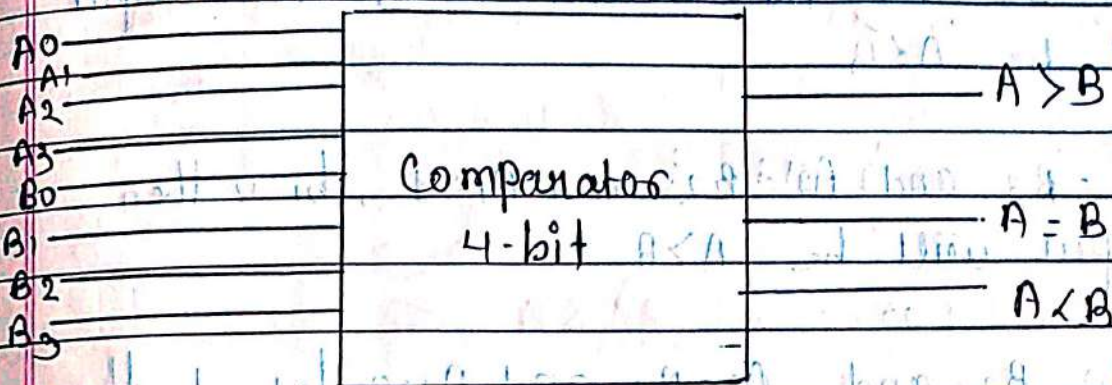 A0
A1
A2
A3
B0
B1
B2
B3
Comparator
4-bit
A > B
A = B
A < B